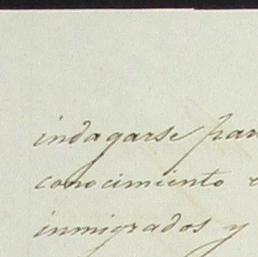 indagarse
conocimiento
inmigrados y